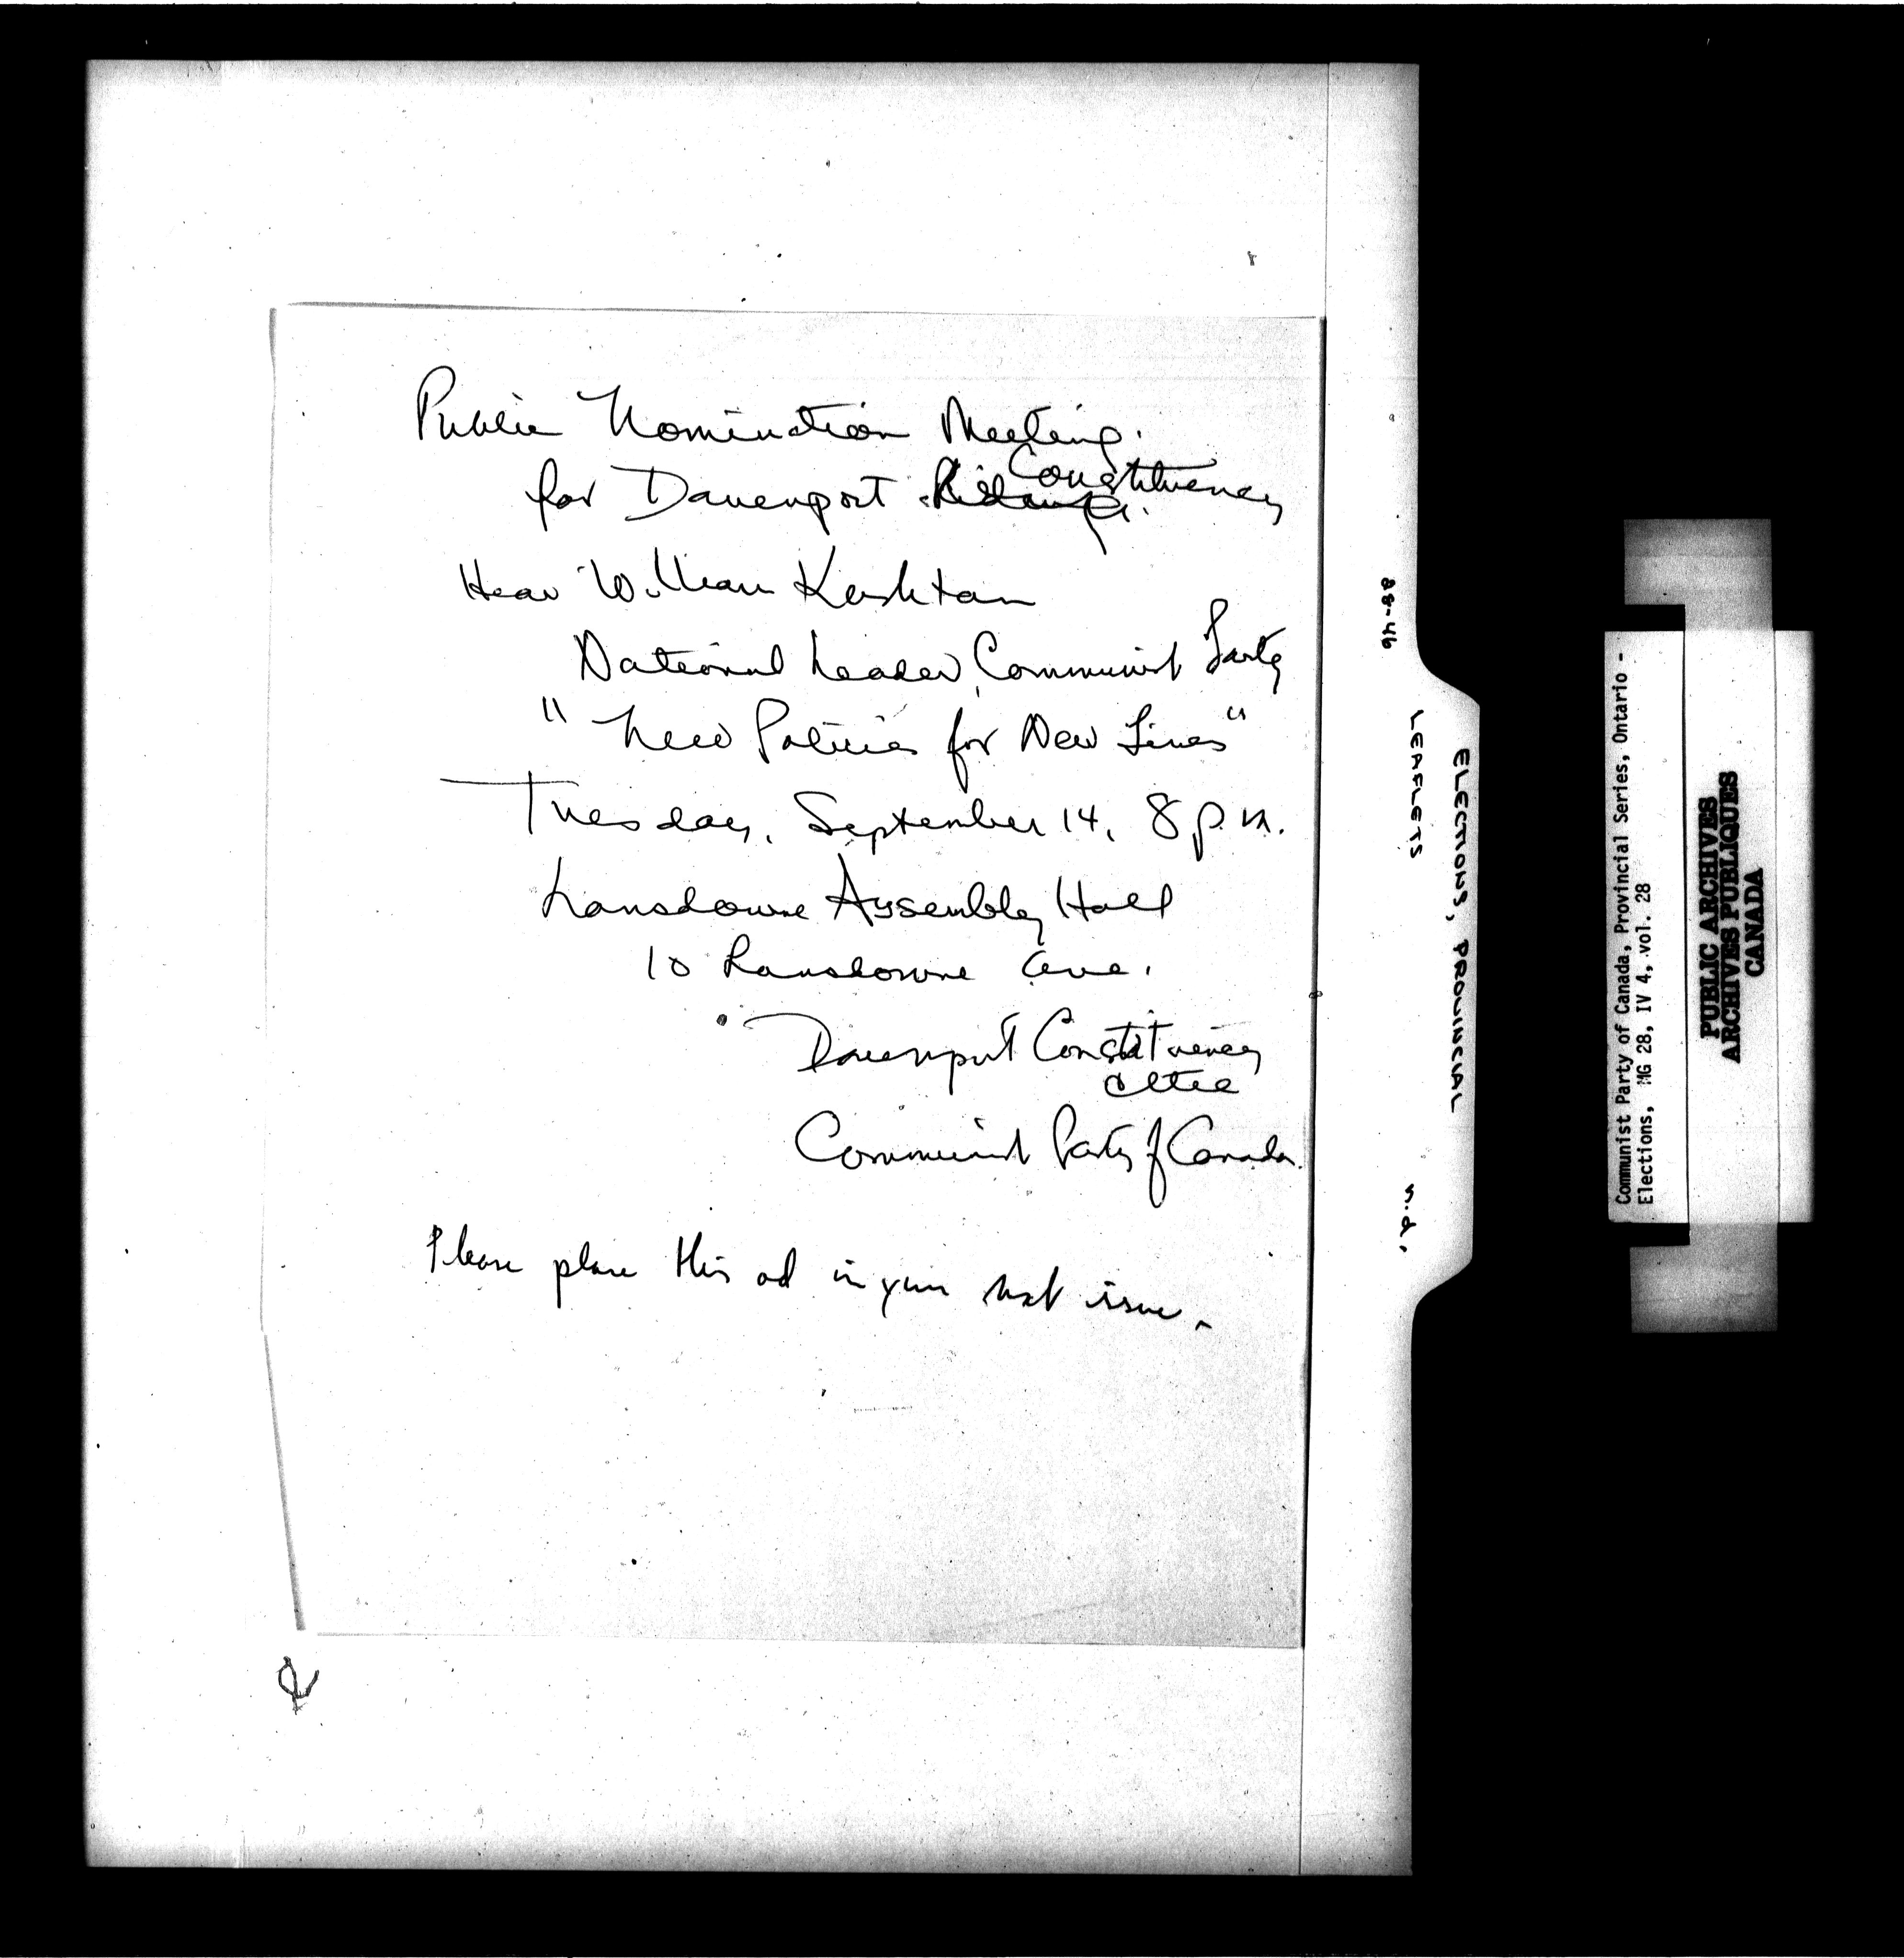 Public Nomination Meeting.
for Davenport Riding. Constituency
Hear William Kashtan
National Leader, Communist Party
"New Policies for New Times"
Tuesday, September 14, 8 p.m.
Lansdowne Assembly Hall
10 Lansdowne Ave.
Davenport Constituency
Cttee
Communist Party of Canada.
Please place this ad in your next issue.
28-46
LEAFLETS
n.d.
ELECTIONS, PROVINCIAL
Communist Party of Canada, Provincial Series, Ontario -
Elections, MG 28, IV 4, vol. 28
PUBLIC ARCHIVES
ARCHIVES PUBLIQUES
CANADA